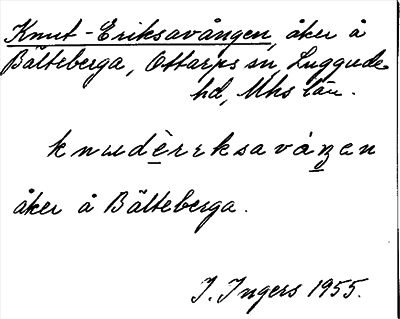 Knut-Eriksavången, åker å
Bälteberga, Ottarps sn, Luggude
hd, Mhs län.
knudèrrksavåŋen
åker å Bälteberga.
I. Ingers 1955.